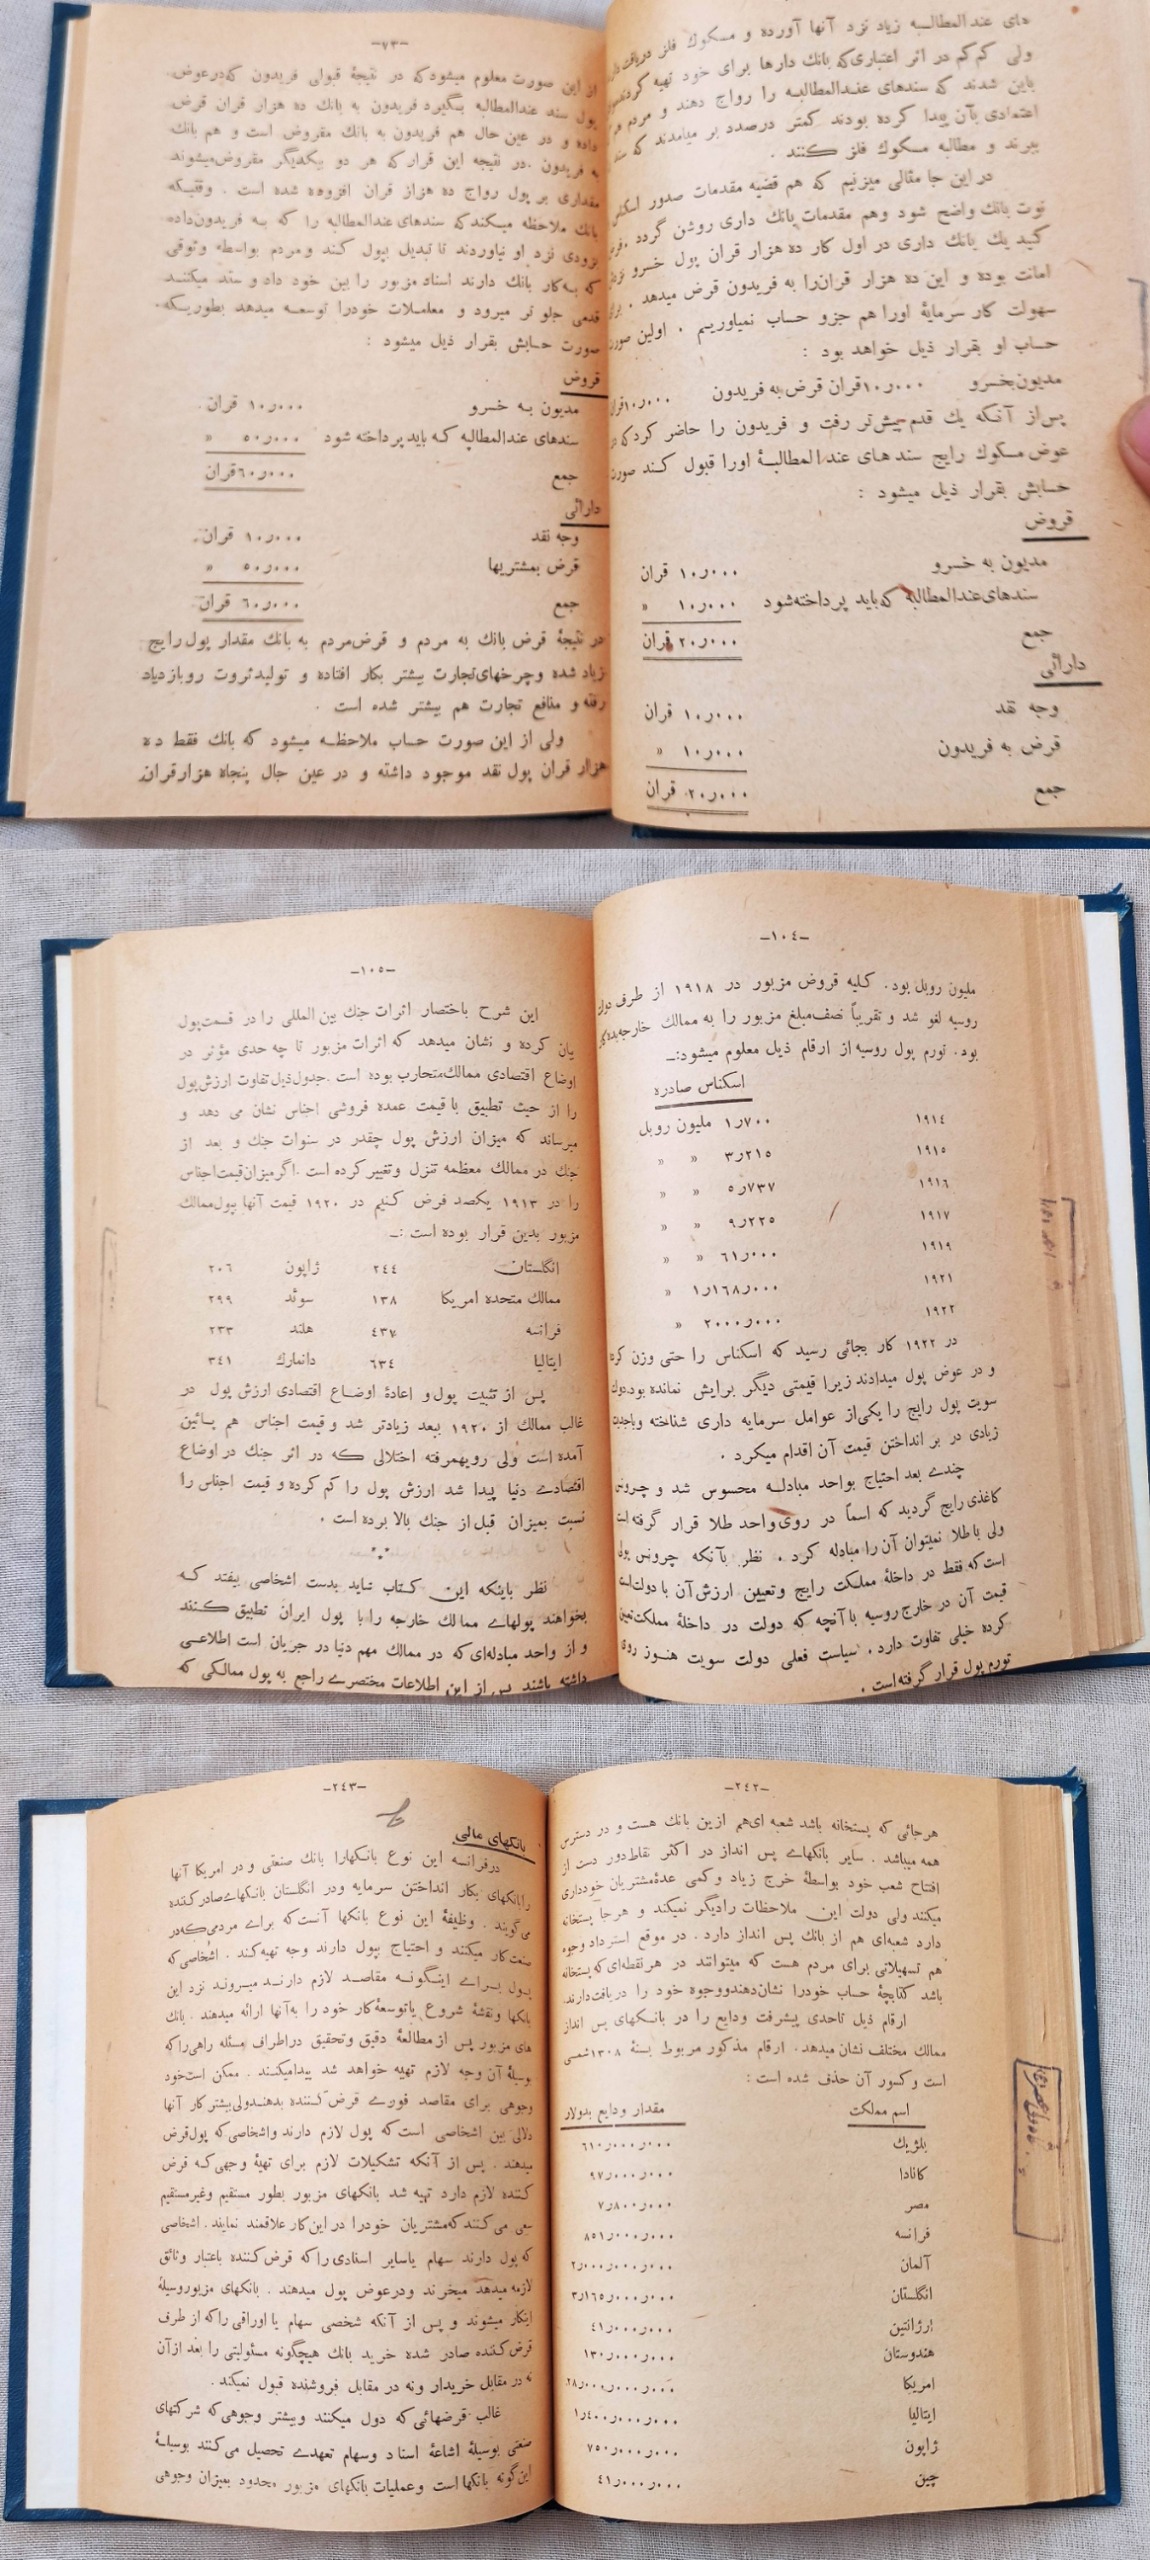 های عندالمطالبه زیاد نزد آنها آورده و مسکوك فلز
ولی کم کم در اثر اعتباری که بانك دارها برای خود تهیه
باین شدند که سندهای عندالمطالبه را رواج دهند و مردم
اعتمادی بآن پیدا کرده بودند کمتر درصدد بر میآمدند که
ببرند و مطالبه مسکوك فلز کنند .
در این جا مثالی میزنیم که هم قضیه مقدمات صدور
نوت بانك واضح شود وهم مقدمات بانك داری روشن گردد
کنید یك بانك داری در اول کار ده هزار قران پول خسرو
امانت بوده و این ده هزار قران‌را به فریدون قرض میدهد .
سهولت کار سرمایهٔ اورا هم جزو حساب نمیاوریم . اولین
حساب او بقرار ذیل خواهد بود :
مدیون بخسرو ۱۰ر۰۰۰قران قرض به فریدون ۱۰ر۰۰۰
پس‌از آنکه یك قدم پیش‌تر رفت و فریدون را حاضر کرد که
عوض مسکوك رایج سندهای عندالمطالبهٔ اورا قبول کند
حسابش بقرار ذیل میشود :
قروض
مدیون به خسرو ۱۰ر۰۰۰ قران
سندهای‌عندالمطالبه که باید پرداخته شود ۱۰ر۰۰۰ «
جمع ۲۰ر۰۰۰ قران
دارائی
وجه نقد ۱۰ر۰۰۰ قران
قرض به فریدون ۱۰ر۰۰۰ «
جمع ۲۰ر۰۰۰ قران
–۷۳–
از این صورت معلوم میشود که در نتیجهٔ قبولی فریدون که درعوض
پول سند عندالمطالبه بگیرد فریدون به بانك ده هزار قران قرض
داده و در عین حال هم فریدون به بانك مقروض است و هم بانك
به فریدون .در نتیجه این قرار که هر دو بیکدیگر مقروض میشوند
مقداری بر پول رواج ده هزار قران افزوده شده است . وقتیکه
بانك ملاحظه میکند که سندهای عندالمطالبه را که به فریدون داده
بزودی نزد او نیاوردند تا تبدیل بپول کند ومردم بواسطه وثوقی
که به کار بانك دارند اسناد مزبور را بین خود داد و ستد میکنند
قدمی جلو تر میرود و معاملات خودرا توسعه میدهد بطوریکه
صورت حسابش بقرار ذیل میشود :
قروض
مدیون به خسرو ۱۰ر۰۰۰ قران
سندهای عندالمطالبه که باید پرداخته شود ۵۰ر۰۰۰ «
جمع ۶۰ر۰۰۰قران
دارائی
وجه نقد ۱۰ر۰۰۰ قران
قرض بمشتریها ۵۰ر۰۰۰ «
جمع ۶۰ر۰۰۰ قران
در نتیجهٔ قرض بانك به مردم و قرض مردم به بانك مقدار پول رایج
زیاد شده وچرخهای تجارت بیشتر بکار افتاده و تولید ثروت روبازدیاد
رفته و منافع تجارت هم بیشتر شده است .
ولی از این صورت حساب ملاحظه میشود که بانك فقط ده
هزار قران پول نقد موجود داشته و در عین حال پنجاه هزار قران
–۱۰٤–
ملیون روبل بود. کلیه قروض مزبور در ۱۹۱۸ از طرف دولت
روسیه لغو شد و تقریباً نصف مبلغ مزبور را به ممالك خارجه
بود. تورم پول روسیه از ارقام ذیل معلوم میشود:ـ
اسکناس صادره
۱۹۱٤ ۱ر۷۰۰ ملیون روبل
۱۹۱۵ ۳ر۲۱۵ « «
۱۹۱۶ ۵ر۷۳۷ « «
۱۹۱۷ ۹ر۲۲۵ « «
۱۹۱۹ ۶۱ر۰۰۰ « «
۱۹۲۱ ۱ر۱۶۸ر۰۰۰ «
۱۹۲۲ ۲۰۰۰ر۰۰۰ «
در ۱۹۲۲ کار بجائی رسید که اسکناس را حتی وزن کرده
و در عوض پول میدادند زیرا قیمتی دیگر برایش نمانده بود.دولت
سویت پول رایج را یکی‌از عوامل سرمایه داری شناخته وباجدیت
زیادی در بر انداختن قیمت آن اقدام میکرد .
چندے بعد احتیاج بواحد مبادله محسوس شد و چرونس
کاغذی رایج گردید که اسماً در روی واحد طلا قرار گرفته است
ولی با طلا نمیتوان آن را مبادله کرد . نظر بآنکه چرونس پول
است که فقط در داخلهٔ مملکت رایج وتعیین ارزش آن با دولت است
قیمت آن در خارج روسیه با آنچه که دولت در داخلهٔ مملکت تعیین
کرده خیلی تفاوت دارد. سیاست فعلی دولت سویت هنوز روی
تورم پول قرار گرفته است .
–۱۰۵–
این شرح باختصار اثرات جنك بین المللی را در قسمت پول
بیان کرده و نشان میدهد که اثرات مزبور تا چه حدی مؤثر در
اوضاع اقتصادی ممالك متحارب بوده است .جدول ذیل تفاوت ارزش پول
را از حیث تطبیق با قیمت عمده فروشی اجناس نشان می دهد و
میرساند که میزان ارزش پول چقدر در سنوات جنك و بعد از
جنك در ممالك معظمه تنزل وتغییر کرده است .اگر میزان قیمت اجناس
را در ۱۹۱۳ یکصد فرض کنیم در ۱۹۲۰ قیمت آنها بپول ممالك
مزبور بدین قرار بوده است :ـ
انگلستان ۲٤٤ ژاپون ۲۰۶
ممالك متحده امریکا ۱۳۸ سوئد ۲۹۹
فرانسه ٤۳۷ هلند ۲۳۳
ایتالیا ۶۳٤ دانمارك ۳٤۱
پس از تثبیت پول و اعادهٔ اوضاع اقتصادی ارزش پول در
غالب ممالك از ۱۹۲۰ ببعد زیادتر شد و قیمت اجناس هم پائین
آمده است ولی رویهمرفته اختلالی که در اثر جنك در اوضاع
اقتصادے دنیا پیدا شد ارزش پول را کم کرده و قیمت اجناس را
نسبت بمیزان قبل از جنك بالا برده است .
٭٭٭
نظر باینکه این کتاب شاید بدست اشخاصی بیفتد که
بخواهند پولهاے ممالك خارجه را با پول ایران تطبیق کنند
و از واحد مبادله‌ای که در ممالك مهم دنیا در جریان است اطلاعی
داشته باشند پس از این اطلاعات مختصرے راجع به پول ممالکی که
–۲٤۲–
هرجائی که پستخانه باشد شعبه ای‌هم ازین بانك هست و در دسترس
همه میباشد . سایر بانکهاے پس انداز در اکثر نقاط دور دست از
افتتاح شعب خود بواسطهٔ خرج زیاد و کمی عدهٔ مشتریان خودداری
میکنند ولی دولت این ملاحظات رادیگر نمیکند و هرجا پستخانه
دارد شعبه‌ای هم از بانك پس انداز دارد . در موقع استرداد وجوه
هم تسهیلاتی برای مردم هست که میتوانند در هر نقطه‌ای که پستخانه
باشد کتابچهٔ حساب خودرا نشان دهند ووجوه خود را دریافت دارند.
ارقام ذیل تاحدی پیشرفت ودایع را در بانکهای پس انداز
ممالك مختلف نشان میدهد. ارقام مذکور مربوط بسنهٔ ۱۳۰۸شمسی
است و کسور آن حذف شده است :
اسم مملکت مقدار ودایع بدولار
بلژیك ۶۱۰ر۰۰۰ر۰۰۰
کانادا ۹۷ر۰۰۰ر۰۰۰
مصر ۷ر۸۰۰ر۰۰۰
فرانسه ۸۵۱ر۰۰۰ر۰۰۰
آلمان ۲ر۰۰۰ر۰۰۰ر۰۰۰
انگلستان ۳ر۱۶۵ر۰۰۰ر۰۰۰
ارژانتین ٤۱ر۰۰۰ر۰۰۰
هندوستان ۱۳۰ر۰۰۰ر۰۰۰
امریکا ۲۸ر۰۰۰ر۰۰۰ر۰۰۰
ایتالیا ۱ر٤۰۰ر۰۰۰ر۰۰۰
ژاپون ۷۵۰ر۰۰۰ر۰۰۰
چین ٤۱ر۰۰۰ر۰۰۰
–۲٤۳–
بانکهای مالی
درفرانسه این نوع بانکهارا بانك صنعتی و در امریکا آنها
رابانکهای بکار انداختن سرمایه ودر انگلستان بانکهاے صادرکننده
می گویند . وظیفهٔ این نوع بانکها آنست که براے مردمی که در
صنعت کار میکنند و احتیاج بپول دارند وجه تهیه کند . اشخاصی که
پول براے اینگونه مقاصد لازم دارند میروند نزد این
بانکها ونقشهٔ شروع یاتوسعهٔ کار خود را به آنها ارائه میدهند . بانك
های مزبور پس از مطالعهٔ دقیق وتحقیق دراطراف مسئله راهی را که
بوسیلهٔ آن وجه لازم تهیه خواهد شد پیدا میکنند . ممکن است خود
وجوهی برای مقاصد فورے قرض کننده بدهند ولی بیشتر کار آنها
دلالی بین اشخاصی است که پول لازم دارند واشخاصی که پول قرض
میدهند . پس از آنکه تشکیلات لازم برای تهیهٔ وجهی که قرض
کننده لازم دارد تهیه شد بانکهای مزبور بطور مستقیم وغیر مستقیم
سعی می کنند که مشتریان خودرا در این کار علاقمند نمایند . اشخاصی
که پول دارند سهام یاسایر اسنادی را که قرض کننده باعتبار وثائق
لازمه میدهد میخرند ودرعوض پول میدهند . بانکهای مزبور وسیلهٔ
اینکار میشوند و پس از آنکه شخصی سهام یا اوراقی را که از طرف
قرض کننده صادر شده خرید بانك هیچگونه مسئولیتی را بعد ازآن
نه در مقابل خریدار ونه در مقابل فروشنده قبول نمیکند .
غالب قرضهائی که دول میکنند وبیشتر وجوهی که شرکتهای
صنعتی بوسیلهٔ اشاعهٔ اسناد وسهام تعهدے تحصیل می کنند بوسیلهٔ
این گونه بانکها است وعملیات بانکهای مزبور محدود بمیزان وجوهی